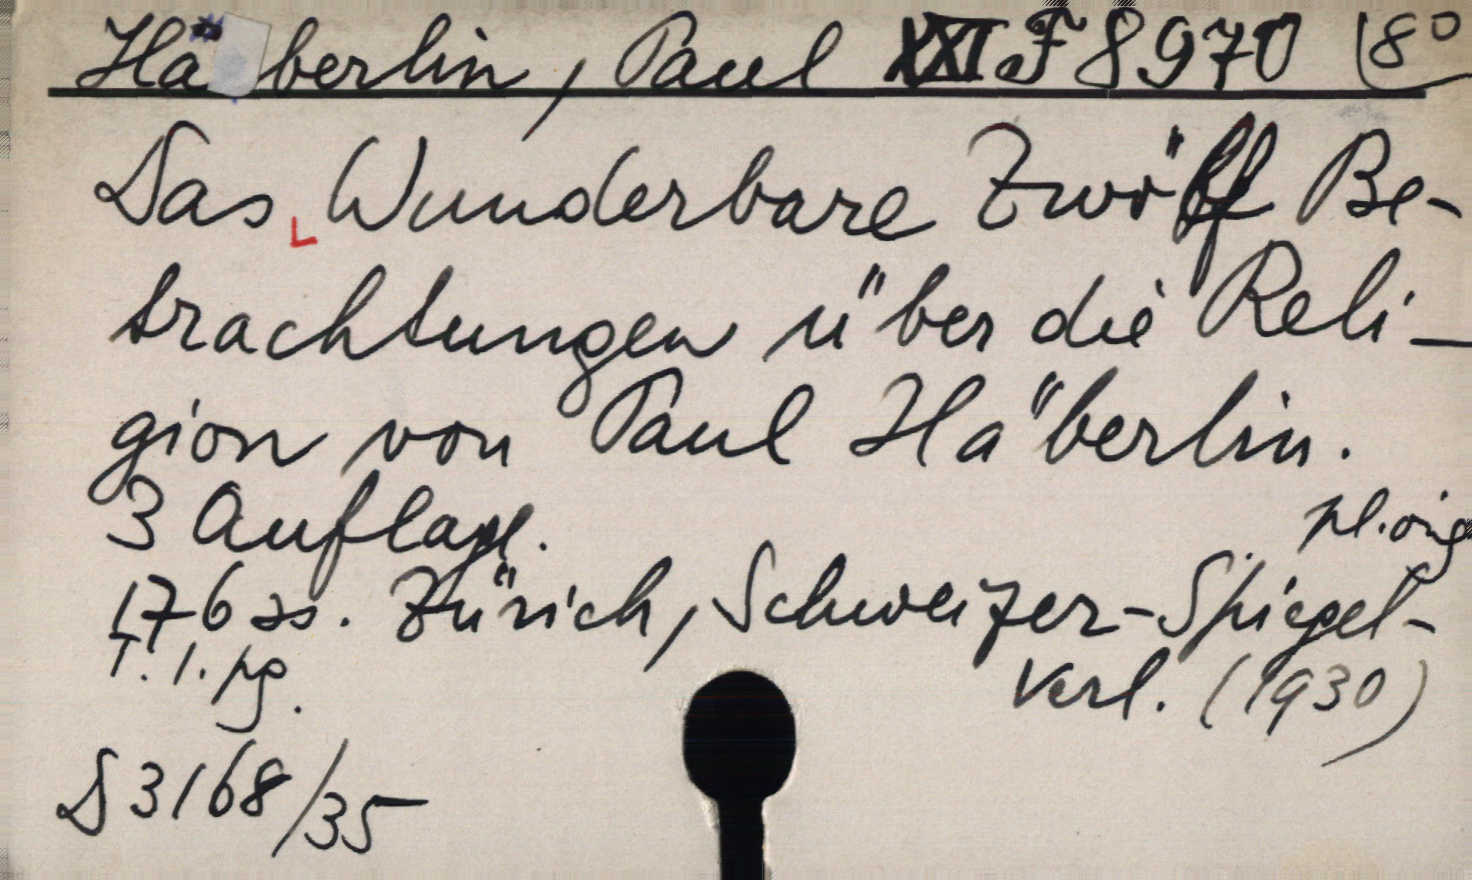 Häberlin, Paul XXI F 8970 8°
Das Wunderbare Zwölf Be-
trachtungen über die Reli-
gion von Paul Häberlin.
3 Auflage.
pl. orig
176 ss. Zürich, Schweizer-Spiegel-
T. 1. pg. Verl. (1930)
D 3168/35